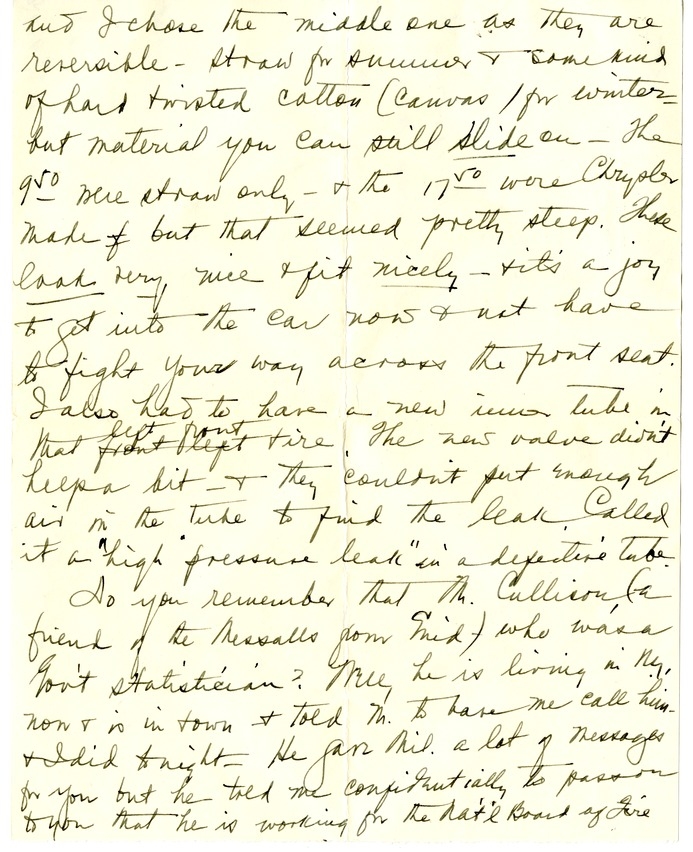 and I chose the middle one as they are
reversible - straw for summer & some kind
of hard twisted cotton (canvas) for winter -
but material you can still slide on - The
9⁵⁰ were straw only - & the 17⁵⁰ were Chrysler
made & but that seemed pretty steep. These
look very nice & fit nicely - & it's a joy
to get into the car now & not have
to fight your way across the front seat.
I also had to have a new inner tube in
that front left left front tire The new valve didn't
help a bit - & they couldn't put enough
air in the tube to find the leak. Called
it a "high pressure leak" in a defective tube.
Do you remember that Mr. Cullison (a
friend of the Messalls from Enid) who was a
Gov't statistician? Well, he is living in N.Y.
now & is in town & told M. to have me call him -
& I did tonight - He gave Mil. a lot of messages
for you but he told me confidentially to pass on
to you that he is working for the Nat'l Board of Fire